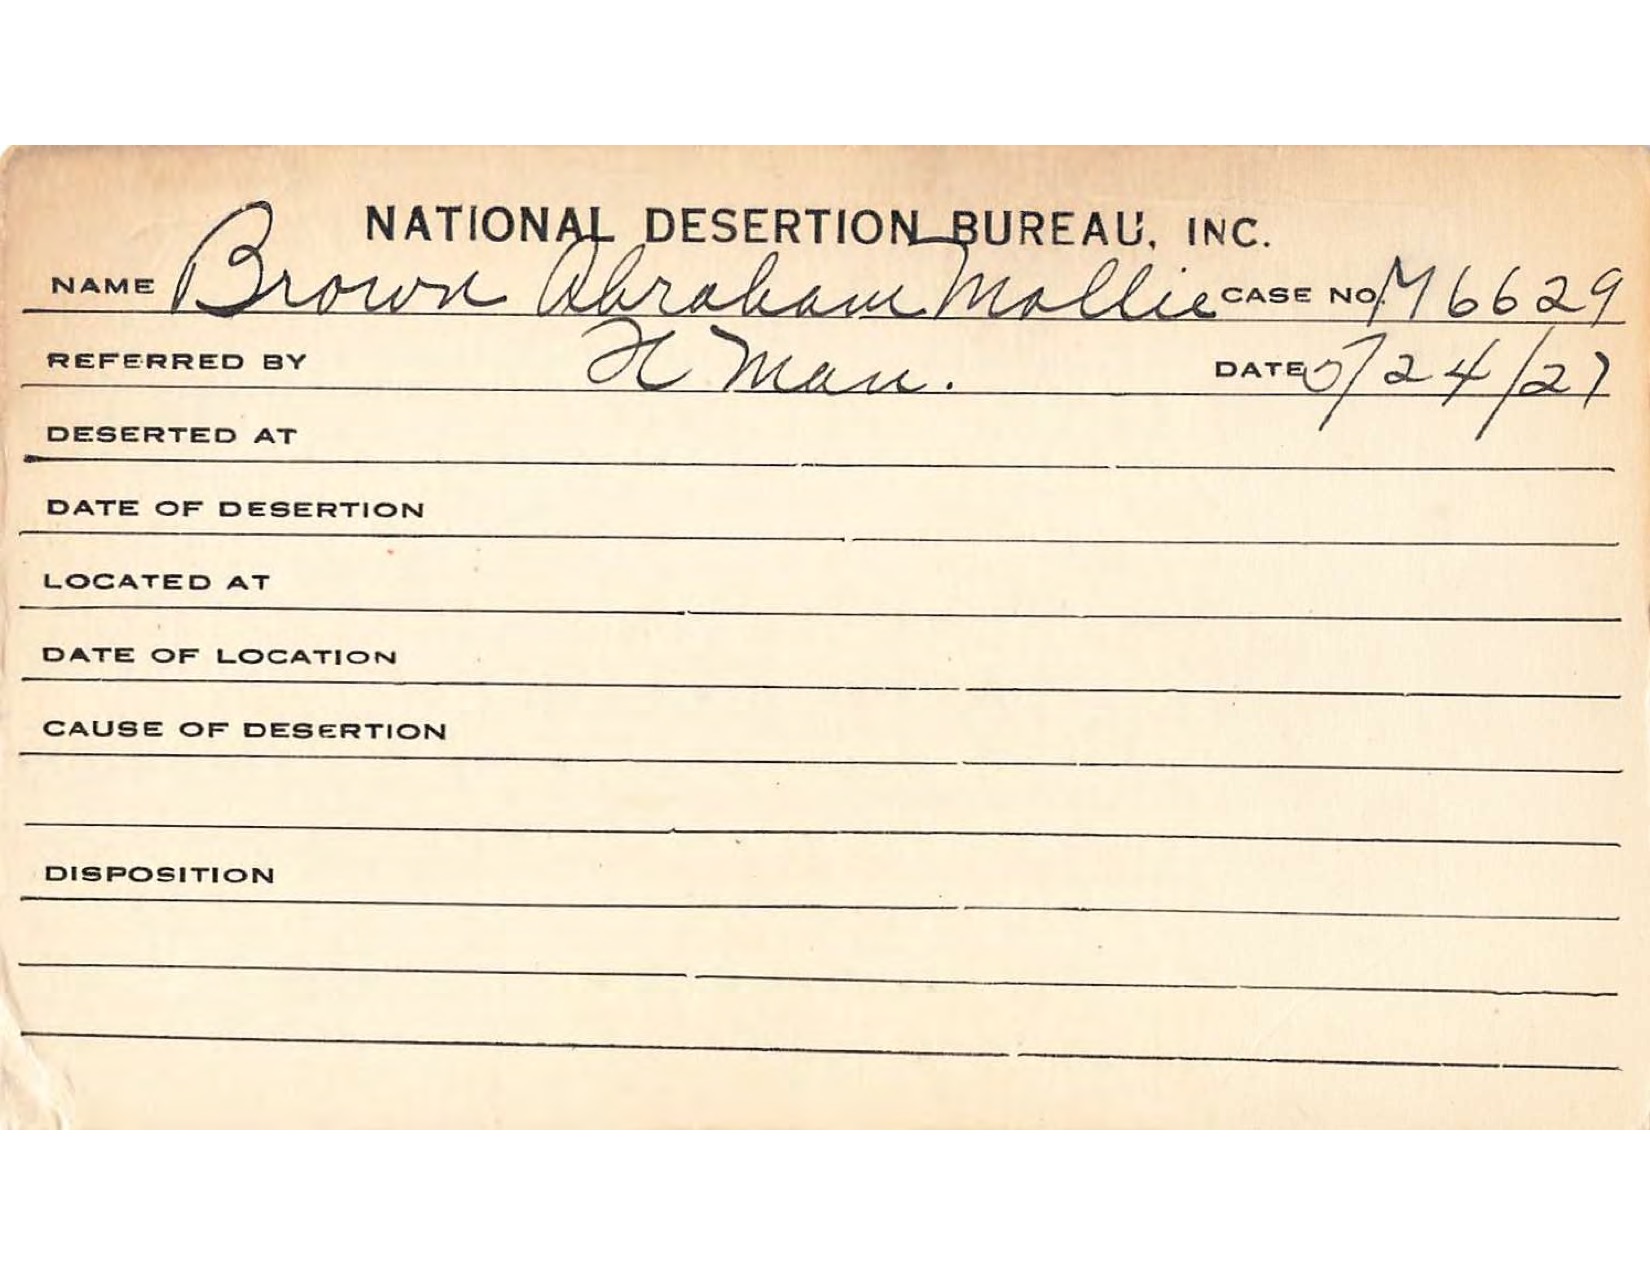 NATIONAL DESERTION BUREAU, INC.
NAME Brown Abraham Mollie CASE NO. M6629
REFERRED BY H Man. DATE 5/24/27
DESERTED AT
DATE OF DESERTION
LOCATED AT
DATE OF LOCATION
CAUSE OF DESERTION
DISPOSITION